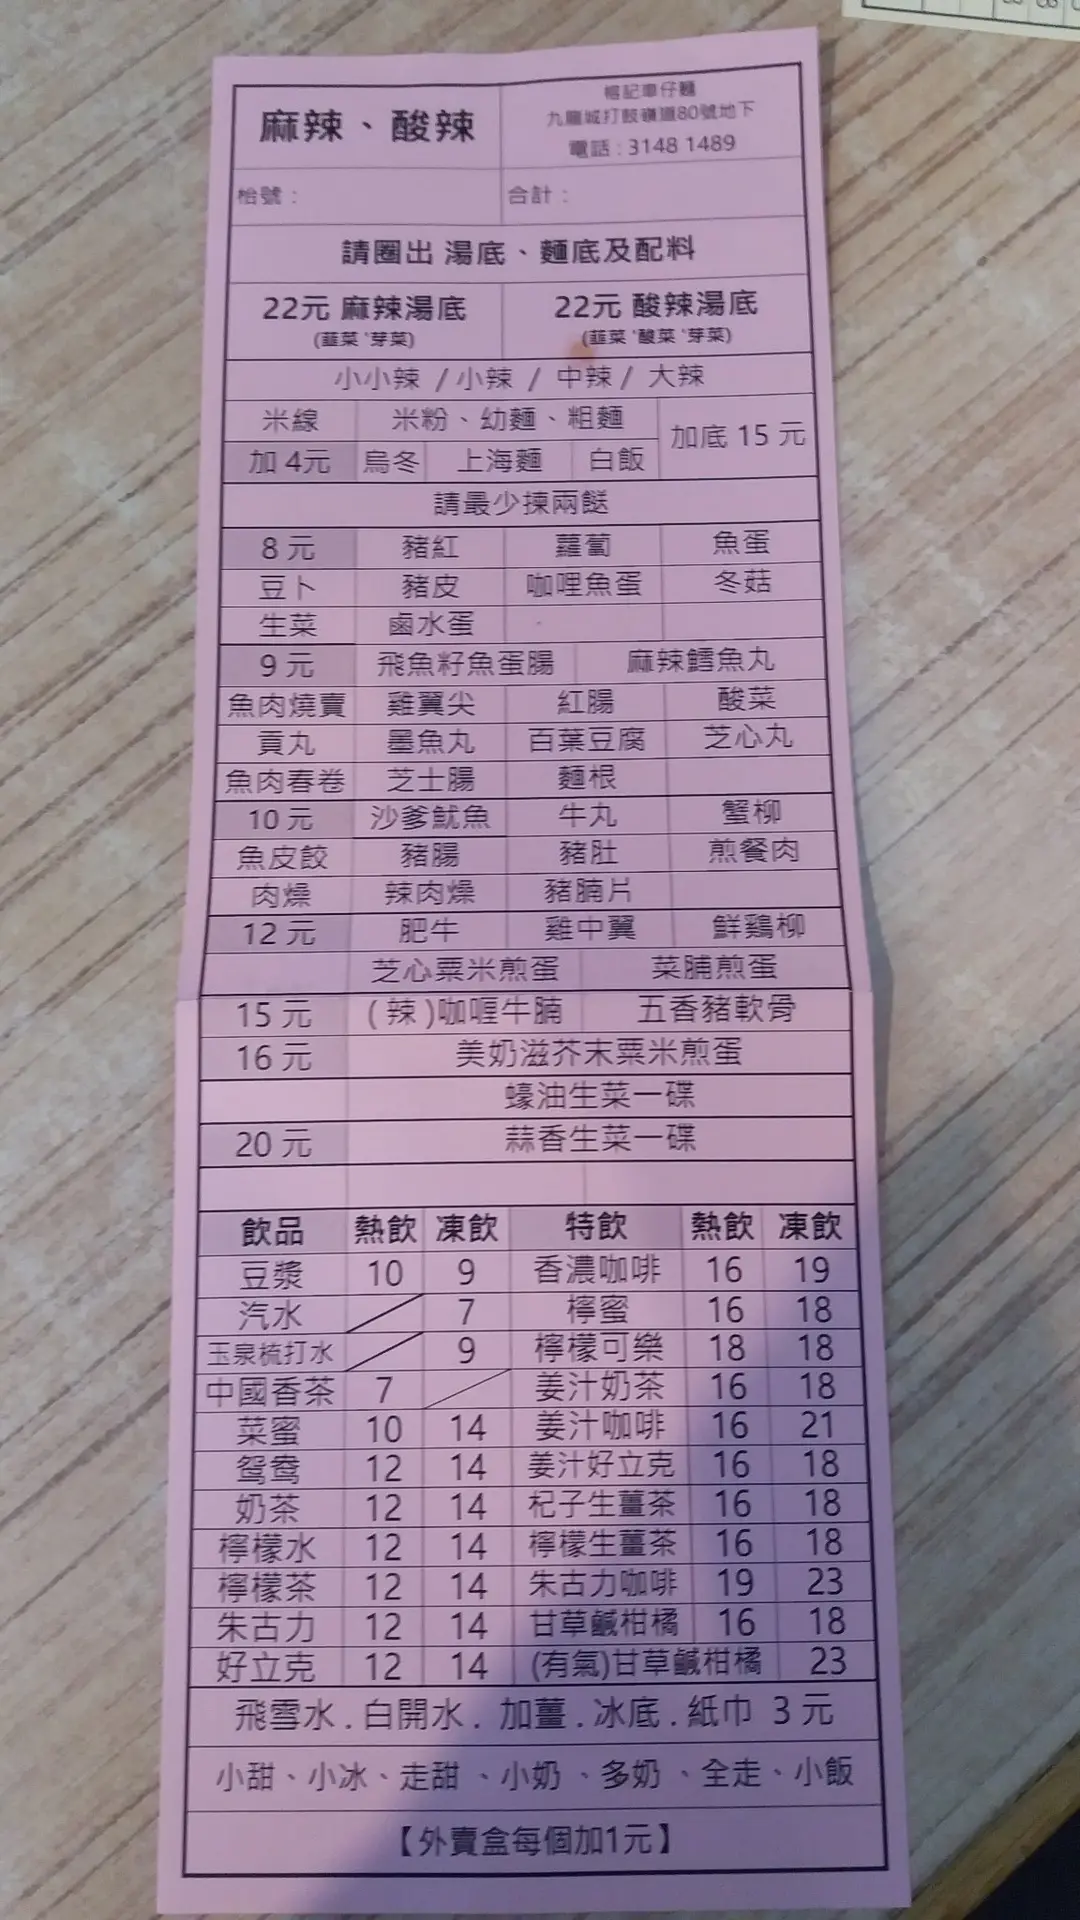 麻辣、酸辣
榕記車仔麵
九龍城打鼓嶺道80號地下
電話：3148 1489
枱號：
合計：
請圈出 湯底、麵底及配料
22元 麻辣湯底
(韮菜、芽菜)
22元 酸辣湯底
(韮菜、酸菜、芽菜)
小小辣 / 小辣 / 中辣 / 大辣
米線 米粉、幼麵、粗麵 加底 15 元
加 4元 烏冬 上海麵 白飯
請最少揀兩餸
8 元 豬紅 蘿蔔 魚蛋
豆卜 豬皮 咖哩魚蛋 冬菇
生菜 鹵水蛋
9 元 飛魚籽魚蛋腸 麻辣鱈魚丸
魚肉燒賣 雞翼尖 紅腸 酸菜
貢丸 墨魚丸 百葉豆腐 芝心丸
魚肉春卷 芝士腸 麵根
10 元 沙爹魷魚 牛丸 蟹柳
魚皮餃 豬腸 豬肚 煎餐肉
肉燥 辣肉燥 豬腩片
12 元 肥牛 雞中翼 鮮鷄柳
芝心粟米煎蛋 菜脯煎蛋
15 元 (辣)咖喱牛腩 五香豬軟骨
16 元 美奶滋芥末粟米煎蛋
蠔油生菜一碟
20 元 蒜香生菜一碟
飲品 熱飲 凍飲 特飲 熱飲 凍飲
豆漿 10 9 香濃咖啡 16 19
汽水 7 檸蜜 16 18
玉泉梳打水 9 檸檬可樂 18 18
中國香茶 7 姜汁奶茶 16 18
菜蜜 10 14 姜汁咖啡 16 21
鴛鴦 12 14 姜汁好立克 16 18
奶茶 12 14 杞子生薑茶 16 18
檸檬水 12 14 檸檬生薑茶 16 18
檸檬茶 12 14 朱古力咖啡 19 23
朱古力 12 14 甘草鹹柑橘 16 18
好立克 12 14 (有氣)甘草鹹柑橘 23
飛雪水．白開水．加薑．冰底．紙巾 3 元
小甜、小冰、走甜、小奶、多奶、全走、小飯
【外賣盒每個加1元】